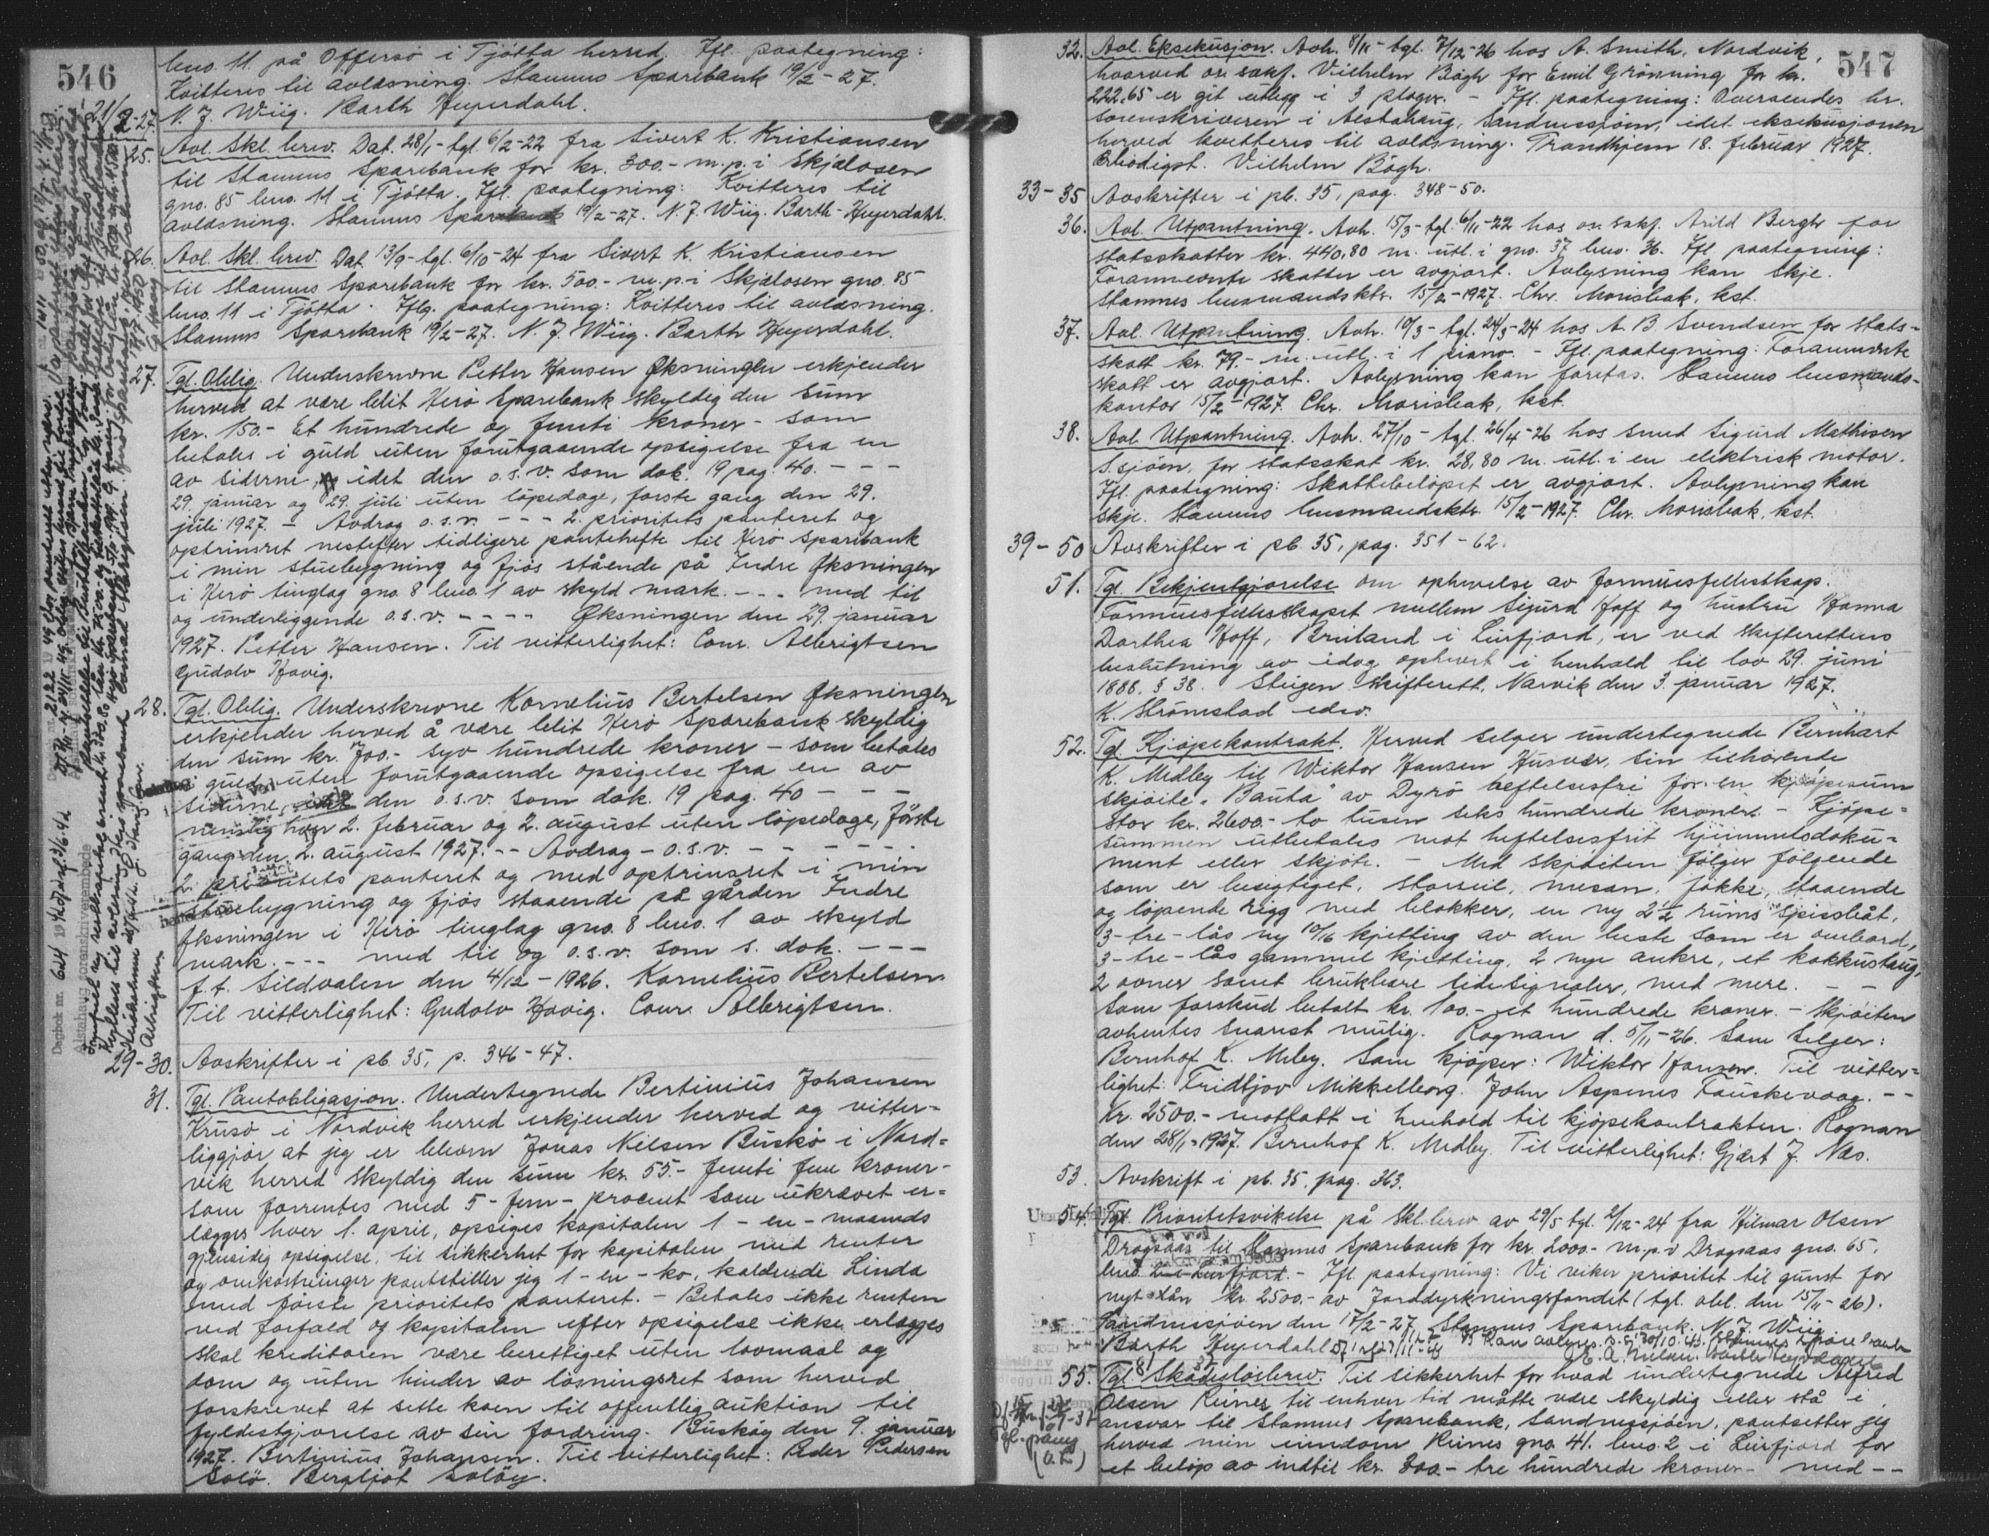 546
bno. 11 på Offersö i Tjötta herred Ifl. paategning:
Kvitteres til avlæsning. Stamnes Sparebank 19/2-27.
N. J. Wiig. Barth Heyerdahl.
21/2-27.
25. Avl. Skl. brev. Dat. 28/1- tgl. 6/2-22 fra Sivert K. Kristiansen
til Stamnes Sparebank for kr. 300.- m.p. i Skjæloosen
gno. 85 bno. 11 i Tjötta. Ifl. paategning: Kvitteres til
avlæsning. Stamnes Sparebank 19/2-27. N. J. Wiig. Barth-Heyerdahl.
26. Avl. Skl. brev. Dat. 13/9- tgl. 6/10-24 fra Sivert K. Kristiansen
til Stamnes Sparebank for kr. 500.- m.p. i Skjæloosen gno. 85
bno. 11 i Tjötta. Iflg. paategning: Kvitteres til avlæsning.
Stamnes Sparebank 19/2-27. N. J. Wiig. Barth Heyerdahl.
27. Tgl. Oblig. Underskrevne Petter Hansen Øksningen erkjender
herved at være blit Herö Sparebank skyldig den sum
kr. 150.- Et hundrede og femti kroner - som
betales i guld uten forutgaaende opsigelse fra en
av siderne, idet den o.s.v. som dok. 19 pag. 40. - - -
29. januar og 29. juli uten löpedage, förste gang den 29.
juli 1927. - Avdrag o.s.v. - - - 2. prioritets panteret og
optrinsret nestefter tidligere pantehefte til Herö Sparebank
i min stuebygning og fjös stående på Indre Øksningen
i Herö tinglag gno. 8 bno. 1 av skyld mark. - - - med til
og underliggende o.s.v. - - - - Øksningen den 29. januar
1927. Petter Hansen. Til vitterlighet: Conr. Albrigtsen
Gudolv Hovig.
28. Tgl. Oblig. Underskrevne Kornelius Bertelsen Øksningen
erkjender herved å være blit Herö Sparebank skyldig
den sum kr. 700.- syv hundrede kroner - som betales
i guld uten forutgaaende opsigelse fra en av
siderne, idet den o.s.v. som dok. 19 pag. 40 - - -
nemlig hver 2. februar og 2. august uten löpedage, förste
gang den 2. august 1927. - - Avdrag - o.s.v. - - - -
2. prioritets panteret og med optrinsret i min
stuebygning og fjös staaende på gården Indre
Øksningen i Herö tinglag gno. 8 bno. 1 av skyld
mark. - - - med til og o.s.v. som s. dok. - - -
f.t. Sildvalen den 4/12-1926. Kornelius Bertelsen
Til vitterlighet: Gudolv Hovig. Conr. Albrigtsen.
29-30. Avskrifter i pb. 35, p. 346-47.
31. Tgl. Pantobligasjon. Undertegnede Bertinius Johansen
Krusö i Nordvik herred erkjender herved og vitter-
liggjör at jeg er bleven Jonas Nilsen Buskö i Nord-
vik herred skyldig den sum kr. 55.- femti fem kroner-
som forrentes med 5 - fem - procent som ukrævet er-
lægges hver 1. april, opsiges kapitalen 1 - en - maaneds
gjensidig opsigelse, til sikkerhet for kapitalen med renter
og omkostninger pantstiller jeg 1 - en - ko, kaldende Linda
med förste prioritets panteret. - Betales ikke renten
ved forfald og kapitalen efter opsigelse ikke erlægges
skal kreditoren være berettiget uten lovmaal og
dom og uten hinder av lösningsret som herved
forskrevet at sette koen til offentlig auktion til
fyldestgjörelse av sin fordring. Busköy den 9. januar
1927. Bertinius Johansen. Til vitterlighet: Peder Pedersen
Solö. Bergljot Solöy.
547
32. Avl. Eksekusjon. Avh. 8/11- tgl. 7/12-26 hos A. Smith, Nordvik,
hvorved or. sakf. Vilhelm Bögh for Emil Grönning for kr.
222.65 er git utlegg i 3 ploger. - Ifl. paategning: Oversendes hr.
sorenskriveren i Alstahaug, Sandnessjöen, idet eksekusjonen
herved kvitteres til avlæsning. Trondhjem 18. februar 1927.
Ærbödigst. Vilhelm Bögh.
33-35 Avskrifter i pb. 35, pag. 348-50.
36. Avl. Utpantning. Avh. 15/3- tgl. 6/11-22 hos or. sakf. Arild Bergh for
statsskatter kr. 440,80 m. utl. i gno. 37 bno. 36. Ifl paategning:
Forannevnte skatter er avgjort. Avlysning kan skje.
Stamnes lensmandsktr. 15/2-1927. Chr. Morisbak, kst.
37. Avl. Utpantning. Avh. 10/3- tgl. 24/3-24 hos A. B. Svendsen for stats-
skatt kr. 79.- m. utl. i 1 piano. - Ifl. paategning: Forannevnte
skatt er avgjort. Avlysning kan foretas. Stamnes lensmands-
kontor 15/2-1927. Chr. Morisbak, kst.
38. Avl. Utpantning. Avh. 27/10- tgl. 26/4-26 hos smed Sigurd Mathisen
S.sjöen, for statsskat kr. 28,80 m. utl. i en elektrisk motor.
Ifl. paategning: Skattebelöpet er avgjort. Avlysning kan
skje. Stamnes lensmandsktr. 15/2-1927. Chr. Morisbak, kst.
39-50 Avskrifter i pb. 35, pag. 351-62.
51. Tgl. Bekjentgjörelse om ophevelse av formuesfellesskap.
Formuesfellesskapet mellem Sigurd Hoff og hustru Hanna
Dorthea Hoff, Bruland i Leirfjord, er ved skifterettens
beslutning av idag ophævet i henhold til lov 29. juni
1888. § 38. Steigen skifterett, Narvik den 3. januar 1927.
K. Strömstad edsv.
52. Tgl. Kjöpekontrakt. Herved selger undertegnede Bernhart
K. Medby til Wiktor Hansen Husvær, sin tilhörende
skjöite "Bauta" av Dyrö heftelsesfri for en kjöpesum
stor kr. 2600.- to tusen seks hundrede kroner. - Kjöpe-
summen utbetales mot heftelsesfrit hjemmelsdoku-
ment eller skjöte. - Med skjöiten fölger fölgende
som er besigtiget, storseil, mesan, fokke, staaende
og löpende rigg med blokker, en ny 2½ rums spissbåt,
3 - tre - lås ny 10/16 kjetting av den beste som er ombord,
3 - tre - lås gammel kjetting, 2 nye ankre, et kokkustaug,
2 ovner samt brukbare sidesignaler, med mere. - -
Som forskud betalt kr. 100.- et hundrede kroner. - Skjöiten
avhentes snarest mulig. Rognan d. 5/11-26. Som selger:
Bernhof K. Meby. Som kjöper: Wiktor Hansen. Til vitter-
lighet: Fridtjov Mikkelborg. John Aspenes Fauskevaag. - -
Kr. 2500.- mottatt i henhold til kjöpekontrakten. Rognan
den 28/1-1927. Bernhof K. Medby. Til vitterlighet: Gjært J. Næs.
53. Avskrift i pb. 35, pag. 363.
54. Tgl. Prioritetsvikelse på Skl. brev av 29/5 tgl. 2/12-24 fra Hjilmar Olsen
Dragsaas til Stamnes Sparebank for kr. 2000.- m.p.v Dragsaas gno. 65,
bno. 2 i Leirfjord. - Ifl. paategning: Vi viker prioritet til gunst for
nyt lån kr. 2500.- av Jorddyrkningsfondet (tgl. obl. den 15/11-26).
Sandnessjöen den 17/2-27 Stamnes Sparebank. N. J. Wiig
Barth Heyerdahl
55. Tgl. Skadeslösbrev. Til sikkerhet for hvad undertegnede Alfred
Olsen Reines til enhver tid måtte være skyldig eller stå i
ansvar til Stamnes Sparebank, Sandnessjöen, pantsetter jeg
herved min eiendom Reines gno. 41. bno. 2 i Leirfjord for
et belöp av indtil kr. 300.- tre hundrede kroner - med - -